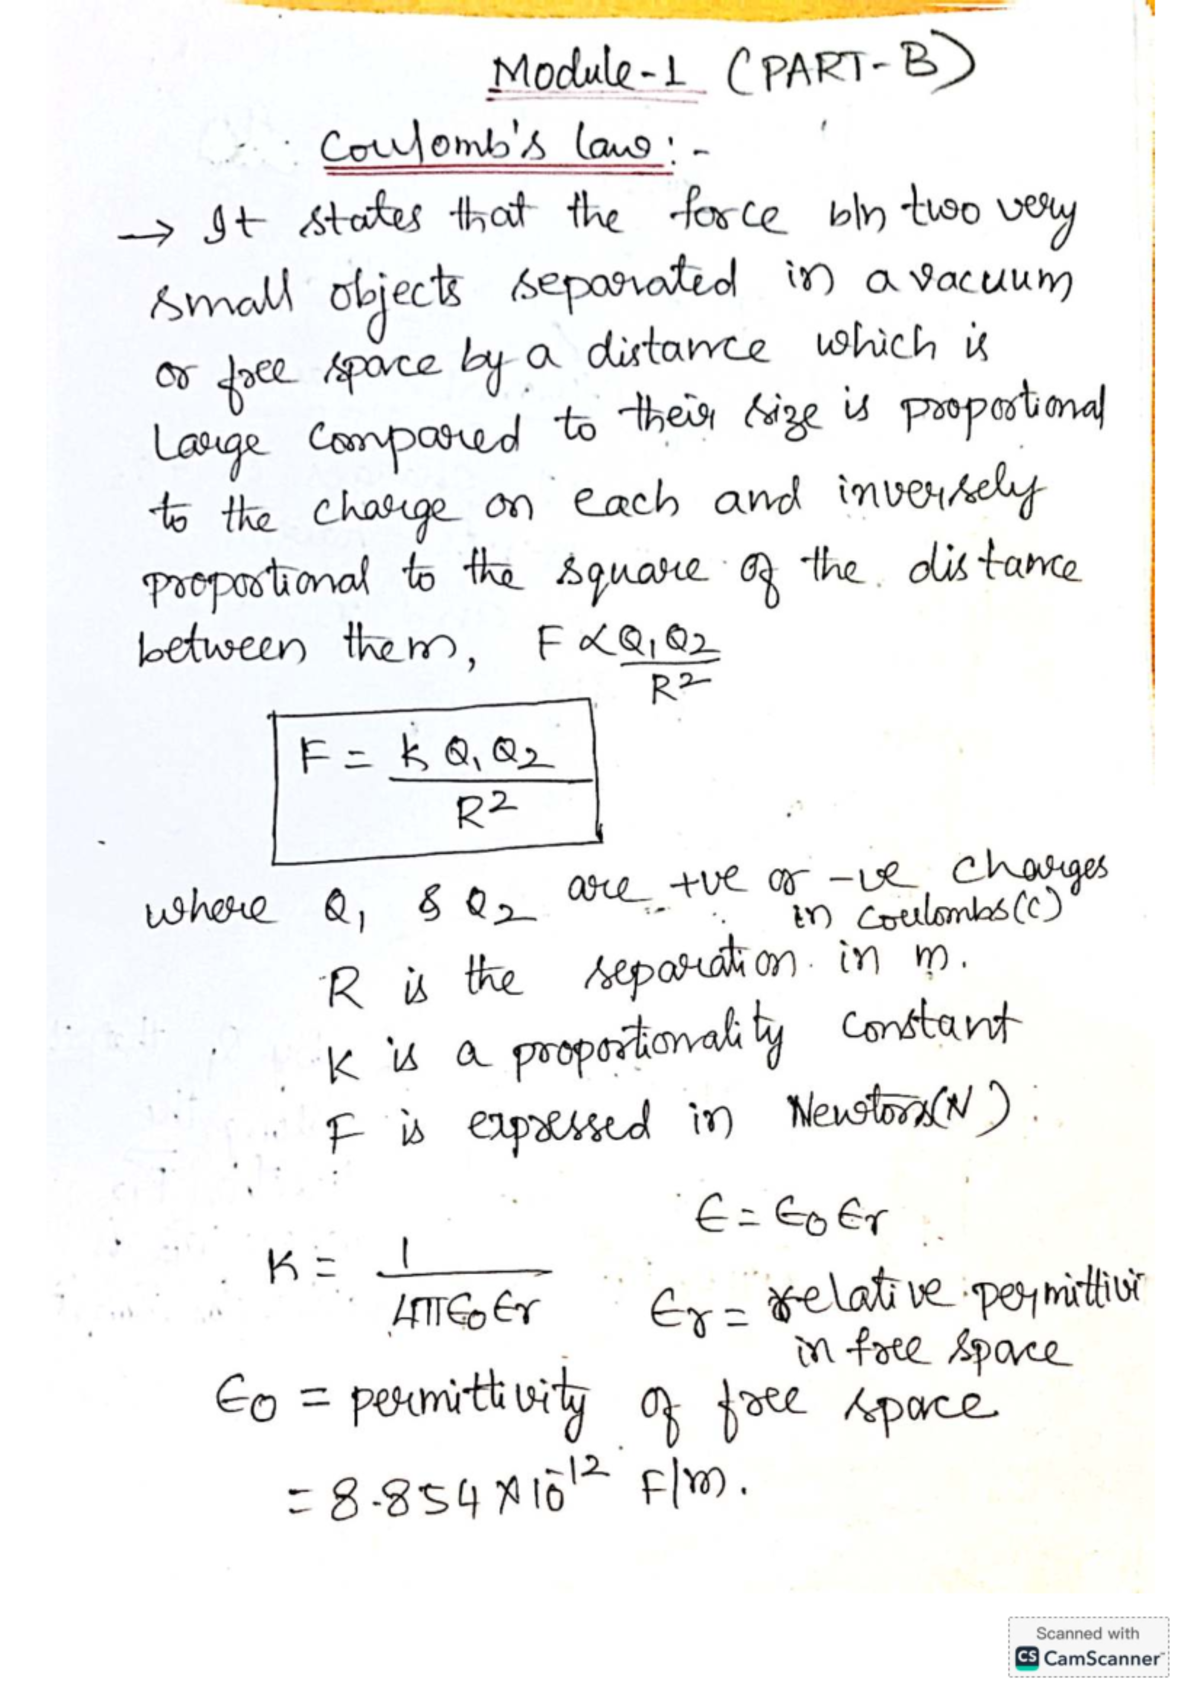 Module-1 (PART-B)
Coulomb's law:-
→ It states that the force b/n two very
small objects separated in a vacuum
or free space by a distance which is
Large compared to their size is proportional
to the charge on each and inversely
proportional to the square of the distance
between them, F ∝ Q₁Q₂/R²
F = k Q₁Q₂/R²
where Q₁ & Q₂ are +ve or -ve charges
in Coulombs(C)
R is the separation in m.
K is a proportionality constant
F is expressed in Newtons(N).
ϵ = ϵ₀ ϵr
K = 1/4πϵ₀ϵr
ϵr = relative permittivi
in free space
ϵ₀ = permittivity of free space
= 8.854 × 10⁻¹² F/m.
Scanned with
CS CamScanner